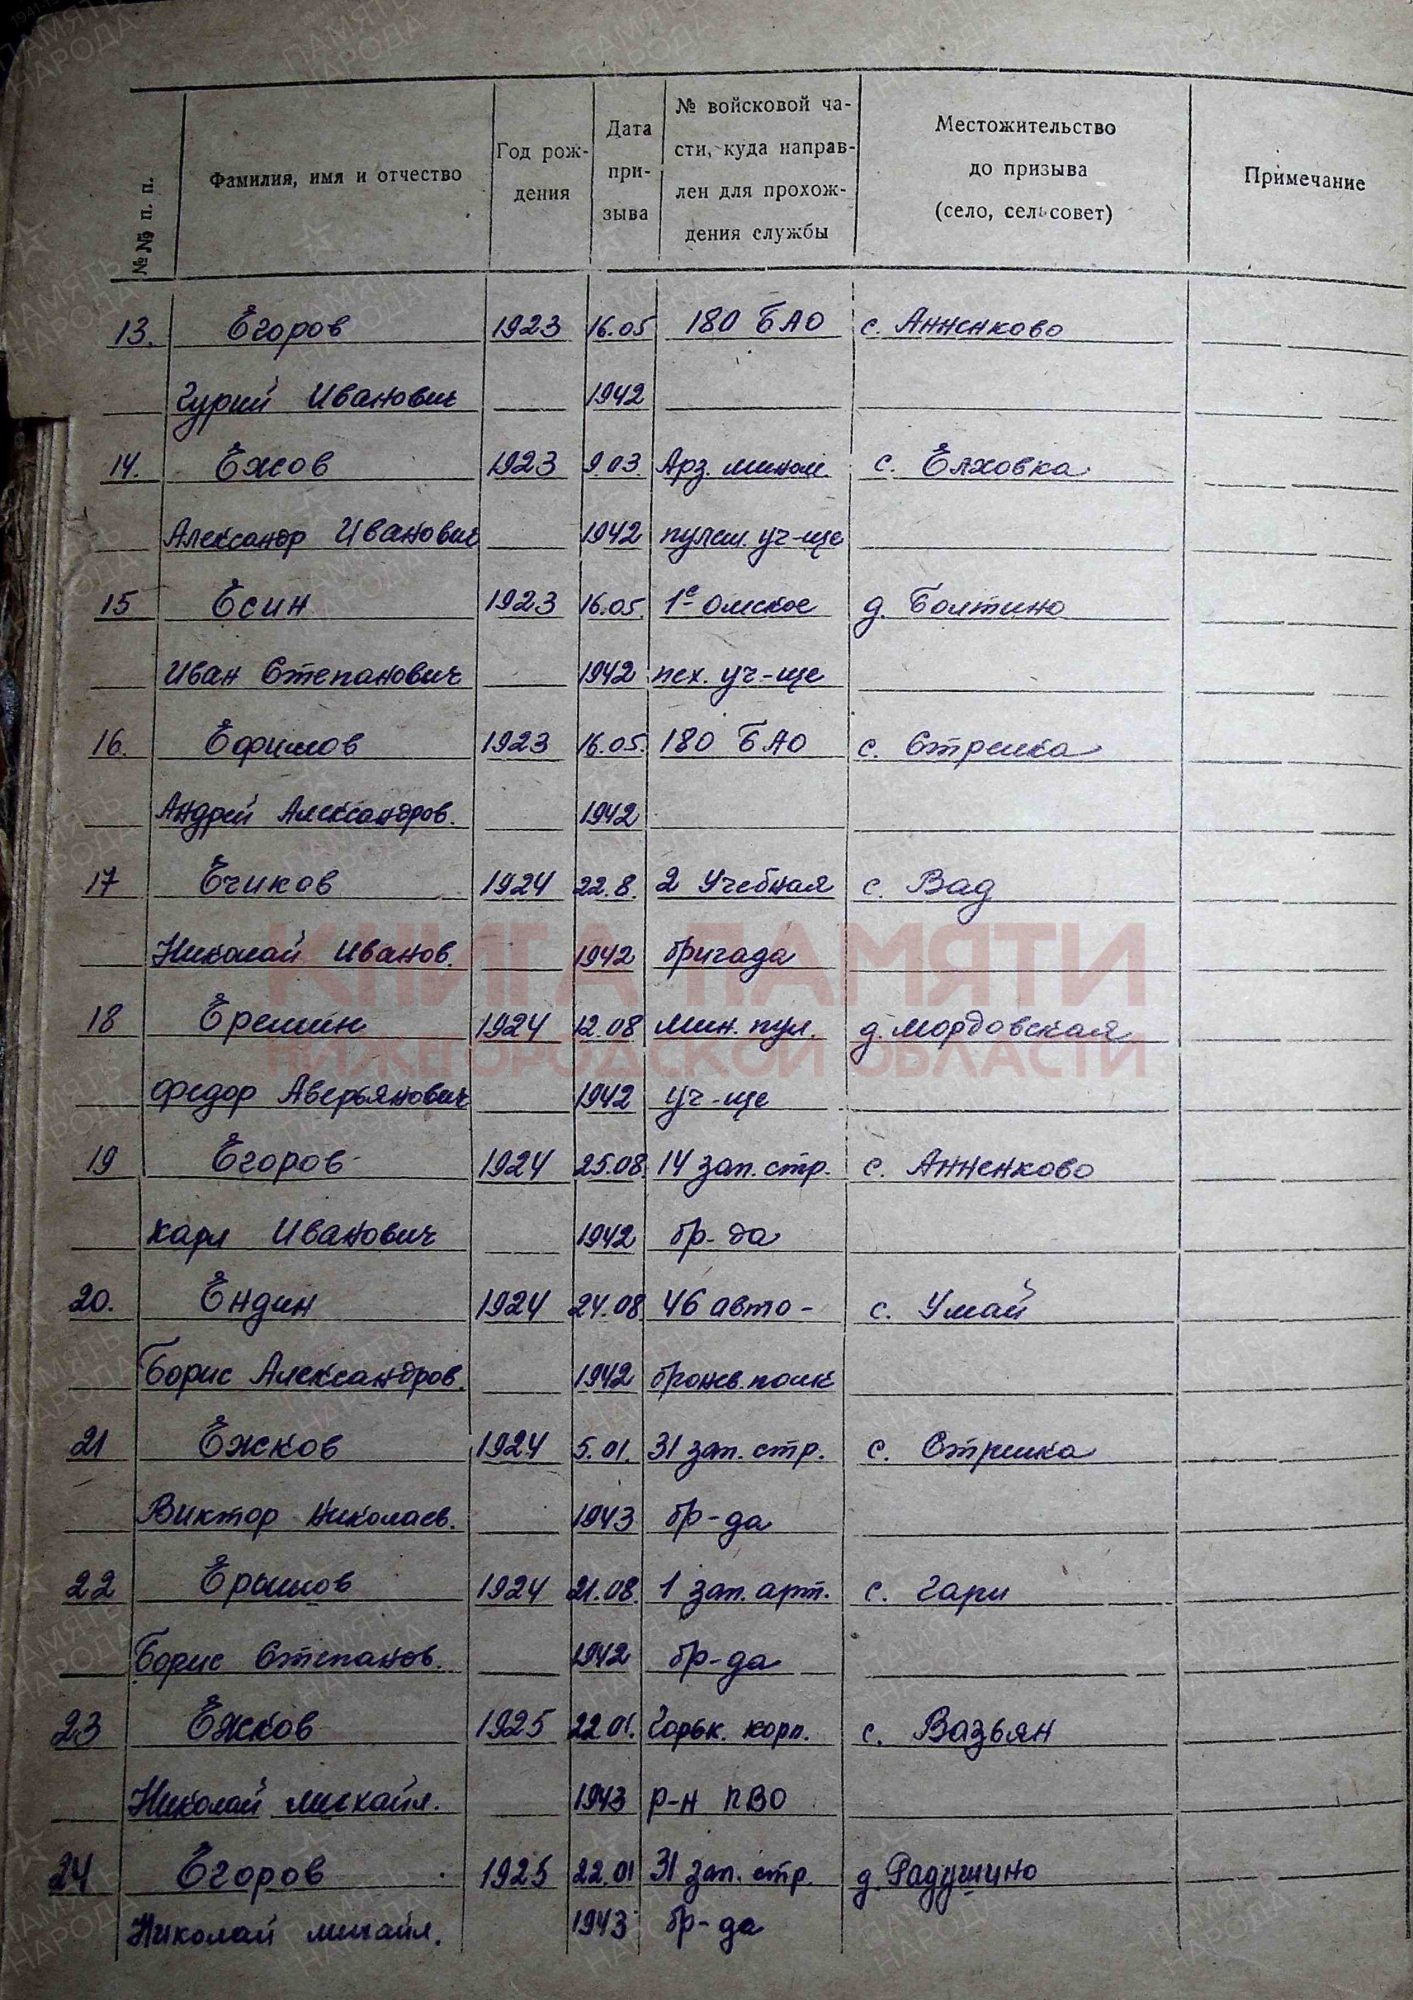 №№ п. п. Фамилия, имя и отчество Год рож- дения Дата при- зыва № войсковой ча- сти, куда направ- лен для прохож- дения службы Местожительство до призыва (село, сельсовет) Примечание
13. Егоров 1923 16.05 180 БАО с. Анненково
Гурий Иванович 1942
14. Ежов 1923 9.03. Арз. мином. с. Елховка
Александр Иванович 1942 пулем. уч-ще
15 Есин 1923 16.05. 1е Омское д. Болтино
Иван Степанович 1942 пех. уч-ще
16. Ефимов 1923 16.05. 180 БАО с. Стрелка
Андрей Александров. 1942
17 Ечиков 1924 22.8. 2 Учебная с. Вад
Николай Иванов. 1942 бригада
КНИГА ПАМЯТИ
18 Еремин 1924 12.08 Мин. пул. д. Мордовская
НИЖЕГОРОДСКОЙ ОБЛАСТИ
Федор Аверьянович 1942 уч-ще
19 Егоров 1924 25.08. 14 зап. стр. с. Анненково
Карл Иванович 1942 бр-да
20. Ендин 1924 24.08 46 авто- с. Умай
Борис Александров. 1942 бронев. полк
21 Ежков 1924 5.01. 31 зап. стр. с. Стрелка
Виктор Николаев. 1943 бр-да
22 Ерымов 1924 21.08. 1 зап. арт. с. Гари
Борис Степанов. 1942 бр-да
23 Ежков 1925 22.01. Горьк. корп. с. Вазьян
Николай Михайл. 1943 р-н ПВО
24 Егоров 1925 22.01 31 зап. стр. д. Радушино
Николай Михайл. 1943 бр-да